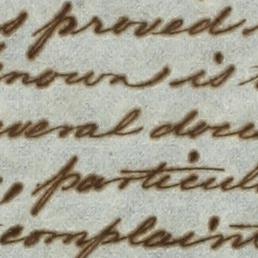 s proved
nown is
everal docu
, particul
complaint